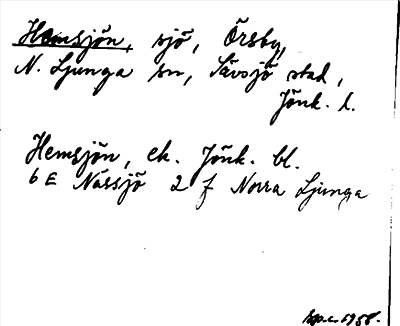 Hemsjön, sjö, Örsby,
N. Ljunga sn, Sävsjö stad,
Jönk. l.
Hemsjön, ek. Jönk. bl.
6 E Nässjö 2 f Norra Ljunga
1958.